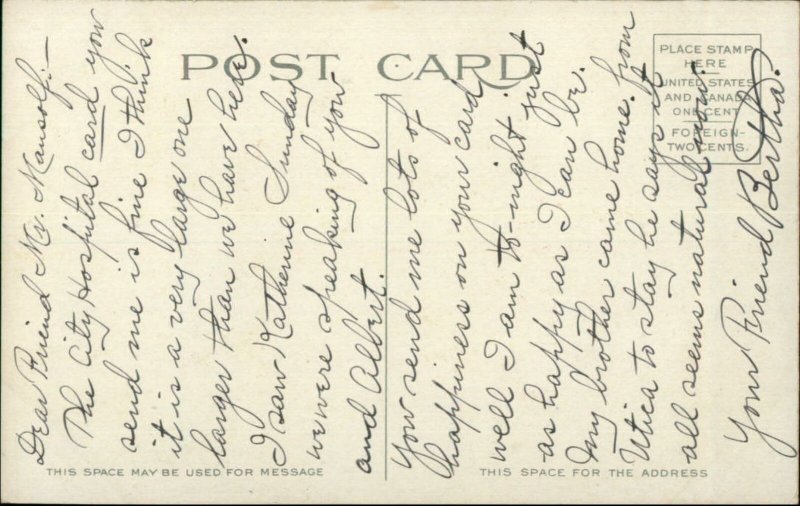 POST CARD
PLACE STAMP
HERE
UNITED STATES
AND CANADA
ONE CENT
FOREIGN-
TWO CENTS.
Dear Friend Mr. Mansolf:—
The City Hospital card you
send me is fine I think
it is a very large one
larger than we have here.
I saw Katherine Sunday
we were speaking of you
and Albert.
You send me lots of
happiness on your card
well I am to-night just
as happy as I can be.
My brother came home from
Utica to stay he says it
all seems natural now.
Your Friend Bertha.
THIS SPACE MAY BE USED FOR MESSAGE
THIS SPACE FOR THE ADDRESS